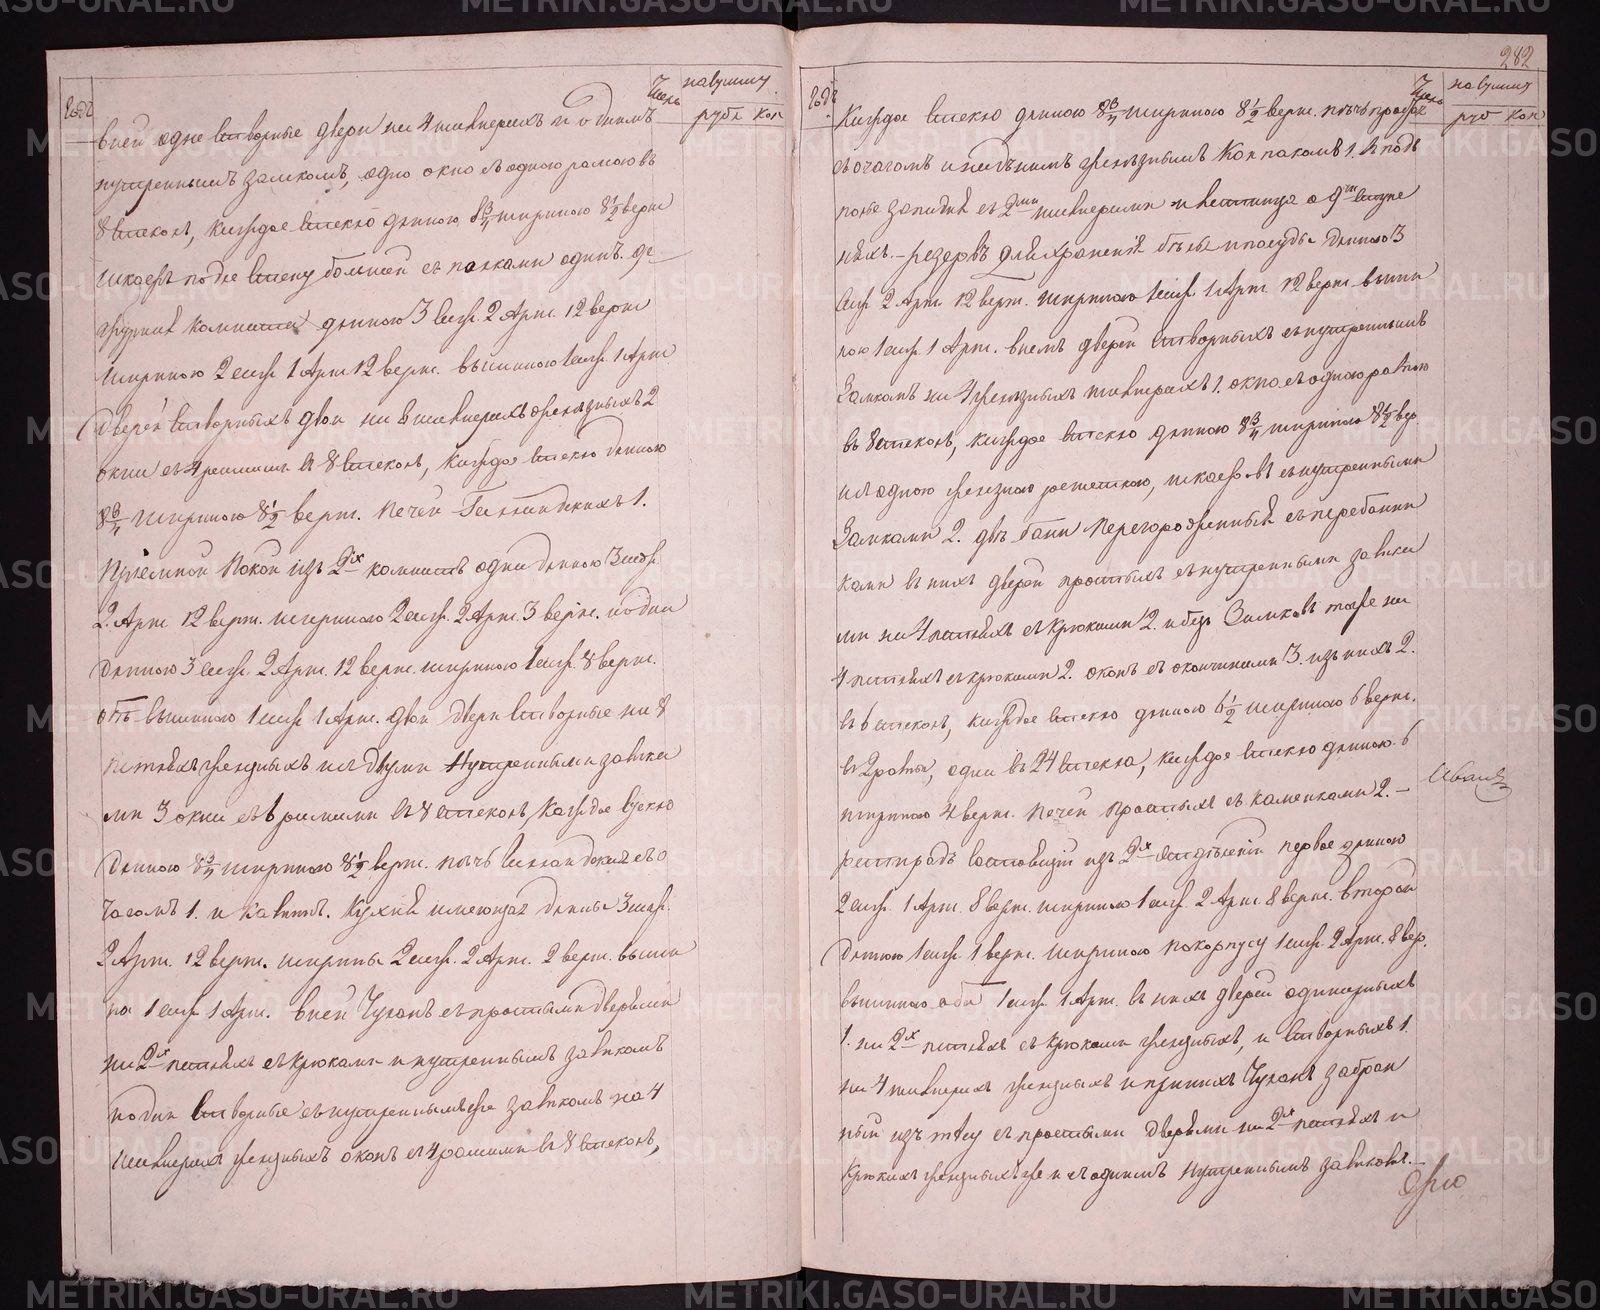 Годъ
Число
на сумму
рубл коп
в ней одне створные двери на 4 шалнерахъ и однимъ
нутреннымъ замкомъ, одно окно съ одною рамою въ
8 стеколъ, каждое стекло длиною 8 3/4 шириною 8 1/2 верш
шкафъ подле стену большей съ полками одинъ.
комната длиною 3 саж. 2 Арш. 12 верш
шириною 2 саж 1 Арш 12 верш. вышиною 1 саж. 1 Арш
Дверей створныхъ двои на 8 шалнерахъ железныхъ 2
окна съ 4 рамами въ 8 стеколъ, каждое стекло длиною
8 3/4 шириною 8 1/2 верш. печей Галландскихъ 1.
Приемной покой изъ 2хъ комнатъ одна длиною 3 саж.
2. Арш 12 верш. шириною 2 саж. 2 Арш. 3 верш. и одна
длиною 3 саж. 2 Арш. 12 верш. шириною 1 саж. 8 верш.
обѣ вышиною 1 саж 1 Арш. двои двери створные на 8
петляхъ железныхъ и съ двумя нутренными замка
ми 3 окна съ рамами въ 8 стеколъ, каждое стекло
длиною 8 3/4 шириною 8 1/2 верш. печь Галландская съ о
чагомъ 1. и Кухня имеющая длины 3 саж.
2 Арш. 12 верш. ширины 2 саж. 2 Арш. 2 верш. выши
на 1 саж 1 Арш. в ней Чуланъ съ простыми дверьми
на 2хъ петляхъ съ крюками и нутреннымъ замкомъ
и одни створные съ нутреннымъ же замкомъ на 4
шалнерахъ железныхъ оконъ съ 4 рамами въ 8 стеколъ,
282
Годъ
Число
на сумму
руб коп
Каждое стекло длиною 8 3/4 шириною 8 1/2 верш. печь
съ очагомъ и надъ нимъ железнымъ колпакомъ 1. и подъ
полье западня съ 2мя шалнерами и лестница о 9ти ступе
няхъ. – резервъ для хранения белья и посуды длиною 3
саж 2 Арш. 12 верш. шириною 1 саж. 1 Арш. 12 верш. выши
ною 1 саж. 1 Арш. в немъ дверей створныхъ съ нутреннымъ
Замкомъ на 4 железныхъ шалнерахъ 1. окно съ одною рамою
въ 8 стеколъ, каждое стекло длиною 8 3/4 шириною 8 1/2 вер.
и съ одною железною решеткою, шкафовъ съ нутренными
Замками 2. двѣ бани перегороженныя съ
ками въ нихъ дверей простыхъ съ нутренными замка
ми на 4 петляхъ съ крюками 2. и безъ Замковъ тоже на
4 петляхъ съ крюками 2. оконъ съ окончинами 3. изъ нихъ 2.
въ 6 стеколъ, каждое стекло длиною 6 1/2 шириною 6 верш.
въ 2 рамы, одна въ 24 стекла, каждое стекло длиною 6
шириною 4 верш. Печей простыхъ съ каменками 2. –
Иванъ
ретирадъ состоящій изъ 2хъ первое длиною
2 саж. 1 Арш. 8 верш. шириною 1 саж. 2 Арш. 8 верш. второй
длиною 1 саж. 1 верш. шириною по корпусу 1 саж. 2 Арш. 8 вер.
вышиною оба 1 саж. 1 Арш. въ нихъ дверей одинарныхъ
1. на 2хъ петляхъ съ крюками железныхъ, и створныхъ 1.
на 4 шалнерахъ железныхъ и при нихъ Чуланъ забран
ный изъ тесу съ простыми дверьми на 2хъ петляхъ и
крюкахъ железныхъ же и съ однимъ нутреннымъ замкомъ.